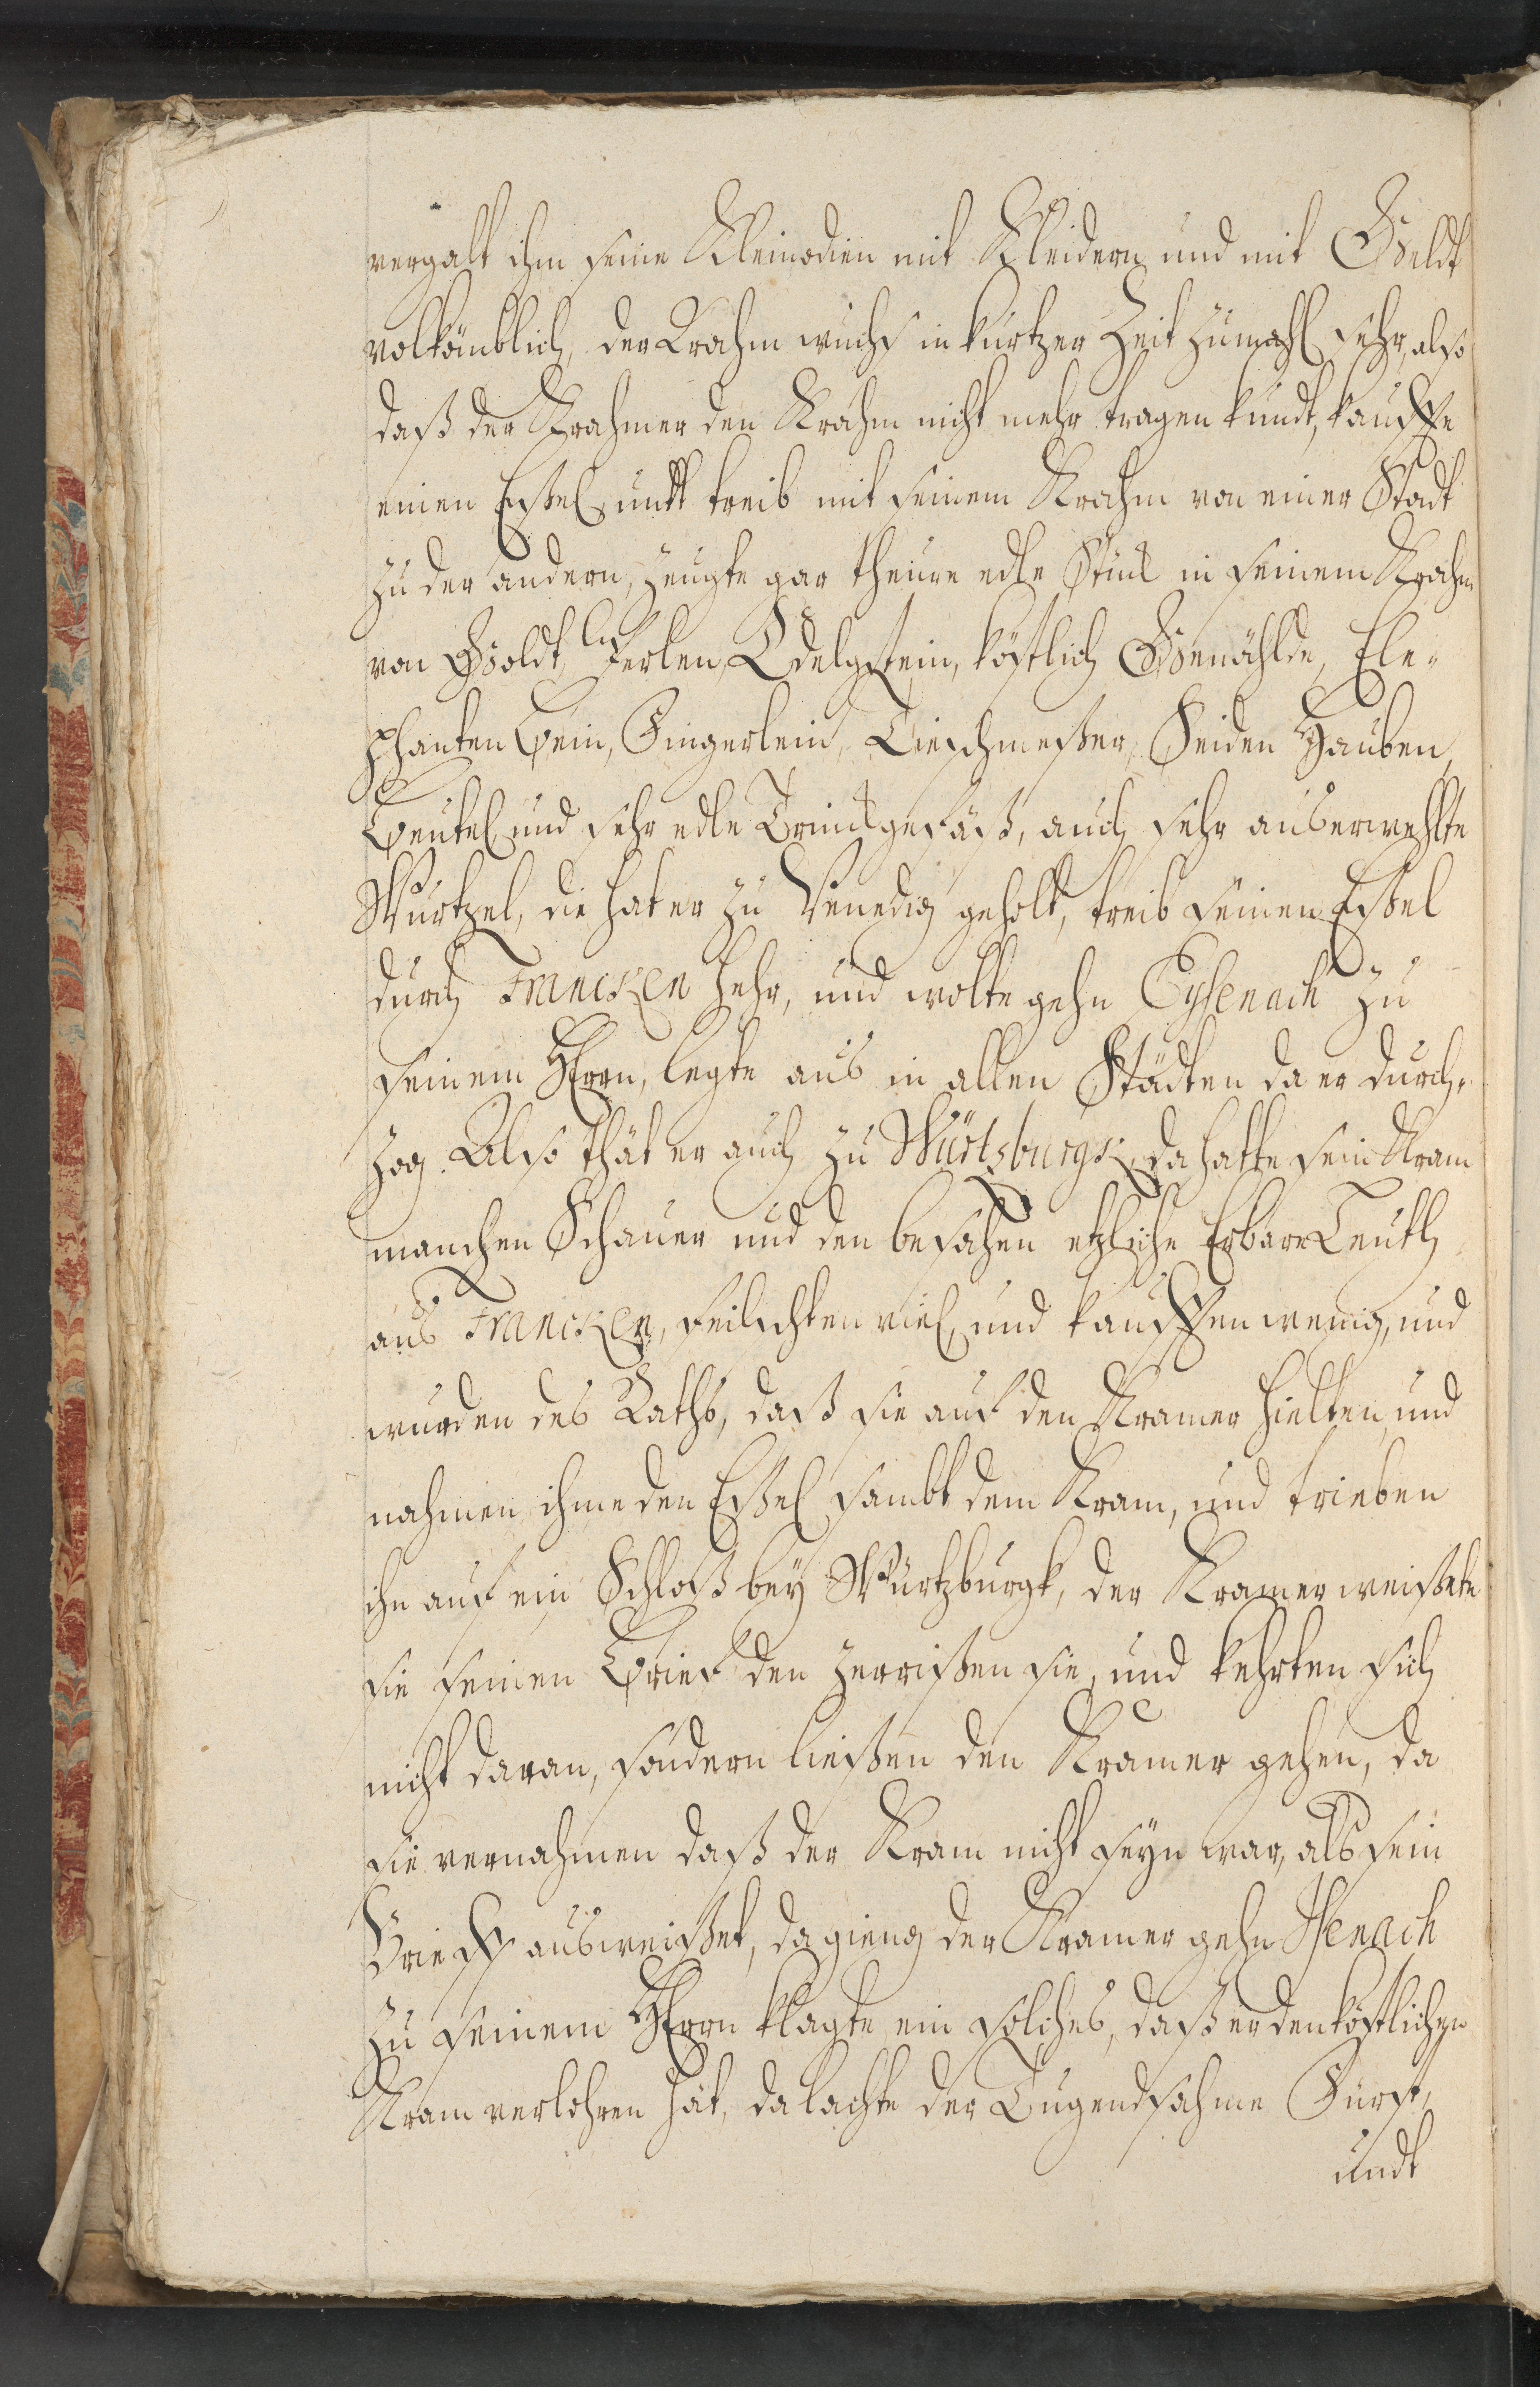 vergalt ihm seine Kleinodien mit Kleidern und mit Geldt
volkömblich, der Krahm wuchs in kurtzer Zeit zumahl sehr, also
daß der Krahmer den Krahm nicht mehr tragen kundt, kauffte
einen Eßel undt treib mit seinem Krahm von einer Stadt
zu der andern, zeugte gar theure edle Stück in seinem Krahm
von Goldt, Perlen, Edelgstein, köstlich Gemählde, Ele-
phanten Bein, Fingerlein, Tieschmeßer, Seiden Hauben,
Beutel und sehr edle Trinckgefäß, auch sehr auserwehlte
Wurtzel, die hat er zu Venedig geholt, treib seinen Eßel
durch Francken hehr, und wolte gehn Eysenach zu
seinem Herrn, legte aus in allen Städten da er durch-
zog. Also thät er auch zu Würtzburgk, da hatte sein Kram
manchen Schauer und den besahen etzliche Erbare Leuth
aus Francken, feilschten viel, und kaufften wenig, und
wurden des Raths, daß sie auf den Kramer hielten, und
nahmen ihme den Eßel sambt dem Kram, und trieben
ihn auf ein Schloß bey Würtzburgk, der Kramer weißete
sie seinen Brief den zerrißen sie, und kehrten sich
nicht daran, sondern ließen den Kramer gehen, da
sie vernahmen daß der Kram nicht seyn war, als sein
Brieff ausweißet, da gieng der Kramer gehn Isenach
zu seinem Herrn klagte ein solches, daß er den köstlichen
Kram verlohren hät, da lachte der Tugendsahme Fürst,
undt